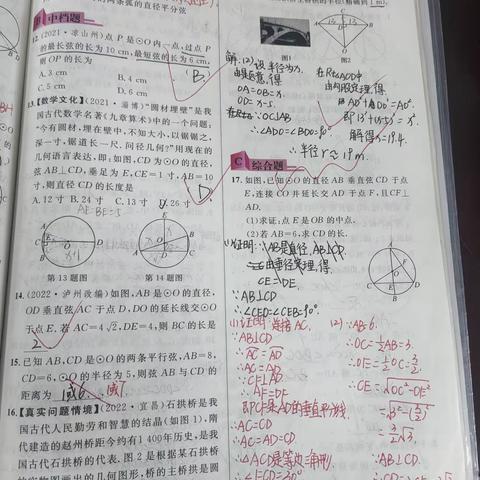 中档题
12.(2021·凉山州)点 P 是⊙O 内一点,过点 P
的最长弦的长为 10 cm,最短弦的长为 6 cm,
则 OP 的长为
B
A. 3 cm
B. 4 cm
C. 5 cm
D. 6 cm
13.【数学文化】(2021·淄博)“圆材埋壁”是我
国古代数学名著《九章算术》中的一个问题:
“今有圆材,埋在壁中,不知大小,以锯锯之,
深一寸,锯道长一尺,问径几何?”用现在的
几何语言表达,即:如图,CD 为⊙O 的直径,
弦 AB⊥CD,垂足为 E,CE=1 寸,AB=10
寸,则直径 CD 的长度是
D
A. 12 寸 B. 24 寸 C. 13 寸 D. 26 寸
AE=BE=5
第 13 题图 第 14 题图
14.(2022·泸州改编)如图,AB 是⊙O 的直径,
OD 垂直弦 AC 于点 D,DO 的延长线交⊙O
于点 E. 若 AC=4√2,DE=4,则 BC 的长是
2
15.已知 AB,CD 是⊙O 的两条平行弦,AB=8,
CD=6,⊙O 的半径为 5,则弦 AB 与 CD 的
距离为
16.【真实问题情境】(2022·宜昌)石拱桥是我
国古代人民勤劳和智慧的结晶(如图 1),隋
代建造的赵州桥距今约有 1 400 年历史,是我
国古代石拱桥的代表. 图 2 是根据某石拱桥
的实物图画出的几何图形,桥的主桥拱是圆
图1
图2
解:(2)设半径为x.
由题意,得
OA=OB=x.
OD=x-5.
∵OC⊥AB
∴∠ADO=∠BDO=90°
在Rt△AOD中
由勾股定理,得
AD²+DO²=AO²
解得x≈19.4.
∴半径r≈19m.
C 综合题
17.如图,已知⊙O 的直径 AB 垂直弦 CD 于点
E,连接 CO 并延长交 AD 于点 F,且 CF⊥
AD.
(1)求证:点 E 是 OB 的中点.
(2)若 AB=6,求 CD 的长.
(1)证明:∵AB是直径,AB⊥CD
由垂径定理,得
CE=DE.
∵AB⊥CD
∴∠CED=∠CEB=90°.
(1)证明:连接AC,
∵AB⊥CD
∴AC=AD
∴AC=AD
∵CF⊥AD
∴AF=DF
即CF是AD的垂直平分线
∴AC=CD
∴AC=AD=CD
∴△ACD是等边三角形.
∴∠FCD=30°
(2)∵AB=6.
∴OC=½AB=3.
∴OE=½OC=3/2
∴CE=√OC²-OE²
=3/2√3.
∵AB⊥CD.